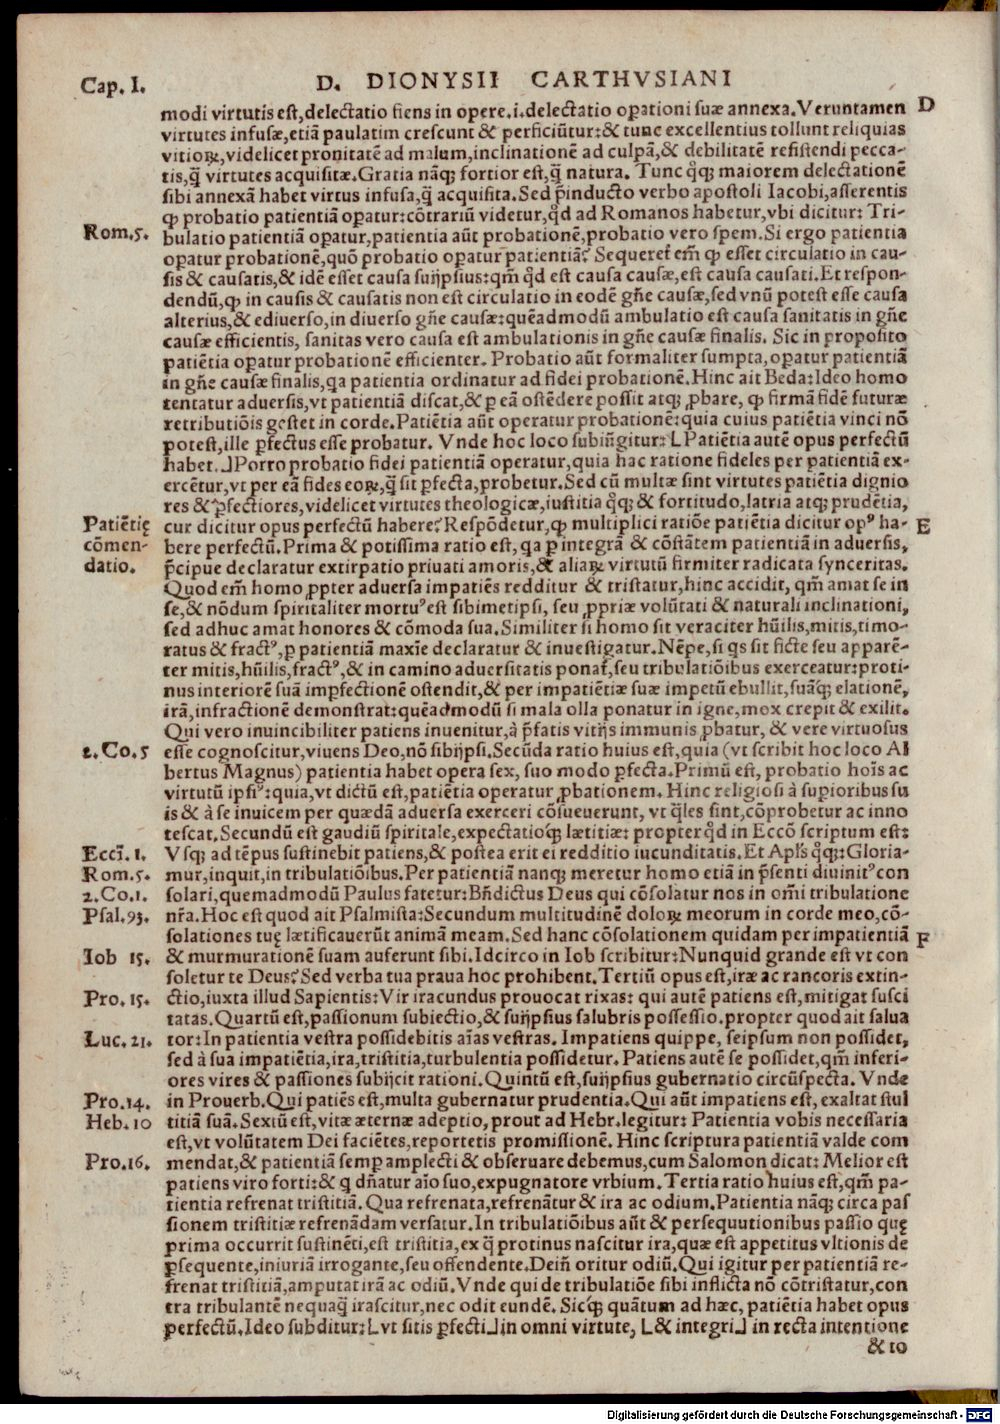 Cap. I.
D. DIONYSII CARTHVSIANI
modi virtutis est, delectatio fiens in opere.i.delectatio oꝑationi suæ annexa. Veruntamen
D
virtutes infusæ, etiā paulatim crescunt & perficiūtur: & tunc excellentius tollunt reliquias
vitioꝝ, videlicet pronitatē ad malum, inclinationē ad culpā, & debilitatē resistendi pecca-
tis, q̃ virtutes acquisitæ. Gratia nāqꝫ fortior est, q̃ natura. Tunc q̊qꝫ maiorem delectationē
sibi annexā habet virtus infusa, q̃ acquisita. Sed p̃inducto verbo apostoli Iacobi, asserentis
ꝙ probatio patientiā oꝑatur: cōtrariū videtur, q̊d ad Romanos habetur, vbi dicitur: Tri-
Rom. 5.
bulatio patientiā oꝑatur, patientia aūt probationē, probatio vero spem. Si ergo patientia
oꝑatur probationē, quō probatio oꝑatur patientiā? Sequeret̃ em̃ ꝙ esset circulatio in cau-
sis & causatis, & idē esset causa suijpsius: qm̃ q̊d est causa causæ, est causa causati. Et respon-
dendū, ꝙ in causis & causatis non est circulatio in eodē gñe causæ, sed vnū potest esse causa
alterius, & ediuerso, in diuerso gñe causæ: quēadmodū ambulatio est causa sanitatis in gñe
causæ efficientis, sanitas vero causa est ambulationis in gñe causæ finalis. Sic in proposito
patiētia oꝑatur probationē efficienter. Probatio aūt formaliter sumpta, oꝑatur patientiā
in gñe causæ finalis, qa patientia ordinatur ad fidei probationē. Hinc ait Beda: Ideo homo
tentatur aduersis, vt patientiā discat, & ꝑ eā ostēdere possit atqꝫ ꝓbare, ꝙ firmā fidē futuræ
retributiōis gestet in corde. Patiētia aūt operatur probationē: quia cuius patiētia vinci nō
potest, ille ꝑfectus esse probatur. Vnde hoc loco subiūgitur: ⌊Patiētia autē opus perfectū
habet.⌋ Porro probatio fidei patientiā operatur, quia hac ratione fideles per patientiā ex-
ercētur, vt per eā fides eoꝝ, q̃ sit ꝑfecta, probetur. Sed cū multæ sint virtutes patiētia dignio
res & ꝑfectiores, videlicet virtutes theologicæ, iustitia q̊qꝫ & fortitudo, latria atqꝫ prudētia,
Patiētię
cōmen-
datio.
cur dicitur opus perfectū habere? Respōdetur, ꝙ multiplici ratiōe patiētia dicitur opꝰ ha-
E
bere perfectū. Prima & potissima ratio est, qa ꝑ integrā & cōstātem patientiā in aduersis,
p̃cipue declaratur extirpatio priuati amoris, & aliaꝝ virtutū firmiter radicata synceritas.
Quod em̃ homo ꝓpter aduersa impatiēs redditur & tristatur, hinc accidit, qm̃ amat se in
se, & nōdum spiritaliter mortuꝰ est sibimetipsi, seu ꝓpriæ volūtati & naturali inclinationi,
sed adhuc amat honores & cōmoda sua. Similiter si homo sit veraciter hūilis, mitis, timo-
ratus & fractꝰ, ꝑ patientiā maxīe declaratur & inuestigatur. Nēpe, si qs sit ficte seu apparē-
ter mitis, hūilis, fractꝰ, & in camino aduersitatis ponat̃, seu tribulatiōibus exerceatur: proti-
nus interiorē suā imꝑfectionē ostendit, & per impatiētiæ suæ impetū ebullit, suāqꝫ elationē,
irā, infractionē demonstrat: quēadmodū si mala olla ponatur in igne, mox crepit & exilit.
Qui vero inuincibiliter patiens inuenitur, à p̃fatis vitijs immunis ꝓbatur, & vere virtuosus
2. Co. 5
esse cognoscitur, viuens Deo, nō sibijpsi. Secūda ratio huius est, quia (vt scribit hoc loco Al
bertus Magnus) patientia habet opera sex, suo modo ꝑfecta. Primū est, probatio hoīs ac
virtutū ipsiꝰ: quia, vt dictū est, patiētia operatur ꝓbationem. Hinc religiosi à suꝑioribus su
is & à se inuicem per quædā aduersa exerceri cōsueuerunt, vt q̃les sint, cōprobetur ac inno
tescat. Secundū est gaudiū spiritale, expectatioqꝫ lætitiæ: propter q̊d in Eccō scriptum est:
Eccī. 1.
Vsqꝫ ad tēpus sustinebit patiens, & postea erit ei redditio iucunditatis. Et Apl̃s q̊qꝫ: Gloria-
Rom. 5.
mur, inquit, in tribulatiōibus. Per patientiā nanqꝫ meretur homo etiā in p̃senti diuinitꝰ con
2. Co. 1.
solari, quemadmodū Paulus fatetur: Bñdictus Deus qui cōsolatur nos in om̃i tribulatione
Psal. 93.
nr̃a. Hoc est quod ait Psalmista: Secundum multitudinē doloꝝ meorum in corde meo, cō-
solationes tuę lætificauerūt animā meam. Sed hanc cōsolationem quidam per impatientiā
F
Iob 15.
& murmurationē suam auferunt sibi. Idcirco in Iob scribitur: Nunquid grande est vt con
soletur te Deus? Sed verba tua praua hoc prohibent. Tertiū opus est, iræ ac rancoris extin-
Pro. 15.
ctio, iuxta illud Sapientis: Vir iracundus prouocat rixas: qui autē patiens est, mitigat susci
tatas. Quartū est, passionum subiectio, & suijpsius salubris possessio. propter quod ait salua
Luc. 21.
tor: In patientia vestra possidebitis aīas vestras. Impatiens quippe, seipsum non possidet,
sed à sua impatiētia, ira, tristitia, turbulentia possidetur. Patiens autē se possidet, qm̃ inferi-
ores vires & passiones subijcit rationi. Quintū est, suijpsius gubernatio circūspecta. Vnde
Pro. 14.
in Prouerb. Qui patiēs est, multa gubernatur prudentia. Qui aūt impatiens est, exaltat stul
Heb. 10
titiā suā. Sextū est, vitæ æternæ adeptio, prout ad Hebr. legitur: Patientia vobis necessaria
est, vt volūtatem Dei faciētes, reportetis promissionē. Hinc scriptura patientiā valde com
Pro. 16.
mendat, & patientiā semꝑ amplecti & obseruare debemus, cum Salomon dicat: Melior est
patiens viro forti: & q dñatur aīo suo, expugnatore vrbium. Tertia ratio huius est, qm̃ pa-
tientia refrenat tristitiā. Qua refrenata, refrenātur & ira ac odium. Patientia nāqꝫ circa pas
sionem tristitiæ refrenādam versatur. In tribulatiōibus aūt & persequutionibus passio quę
prima occurrit sustinēti, est tristitia, ex q̃ protinus nascitur ira, quæ est appetitus vltionis de
ꝑsequente, iniuriā irrogante, seu offendente. Deiñ oritur odiū. Qui igitur per patientiā re-
frenat tristitiā, amputat irā ac odiū. Vnde qui de tribulatiōe sibi inflicta nō cōtristatur, con
tra tribulantē nequaq̃ irascitur, nec odit eundē. Sicqꝫ quātum ad hæc, patiētia habet opus
perfectū. Ideo subditur: ⌊vt sitis ꝑfecti⌋ in omni virtute, ⌊& integri⌋ in recta intentione
& to
Digitalisierung gefördert durch die Deutsche Forschungsgemeinschaft - DFG